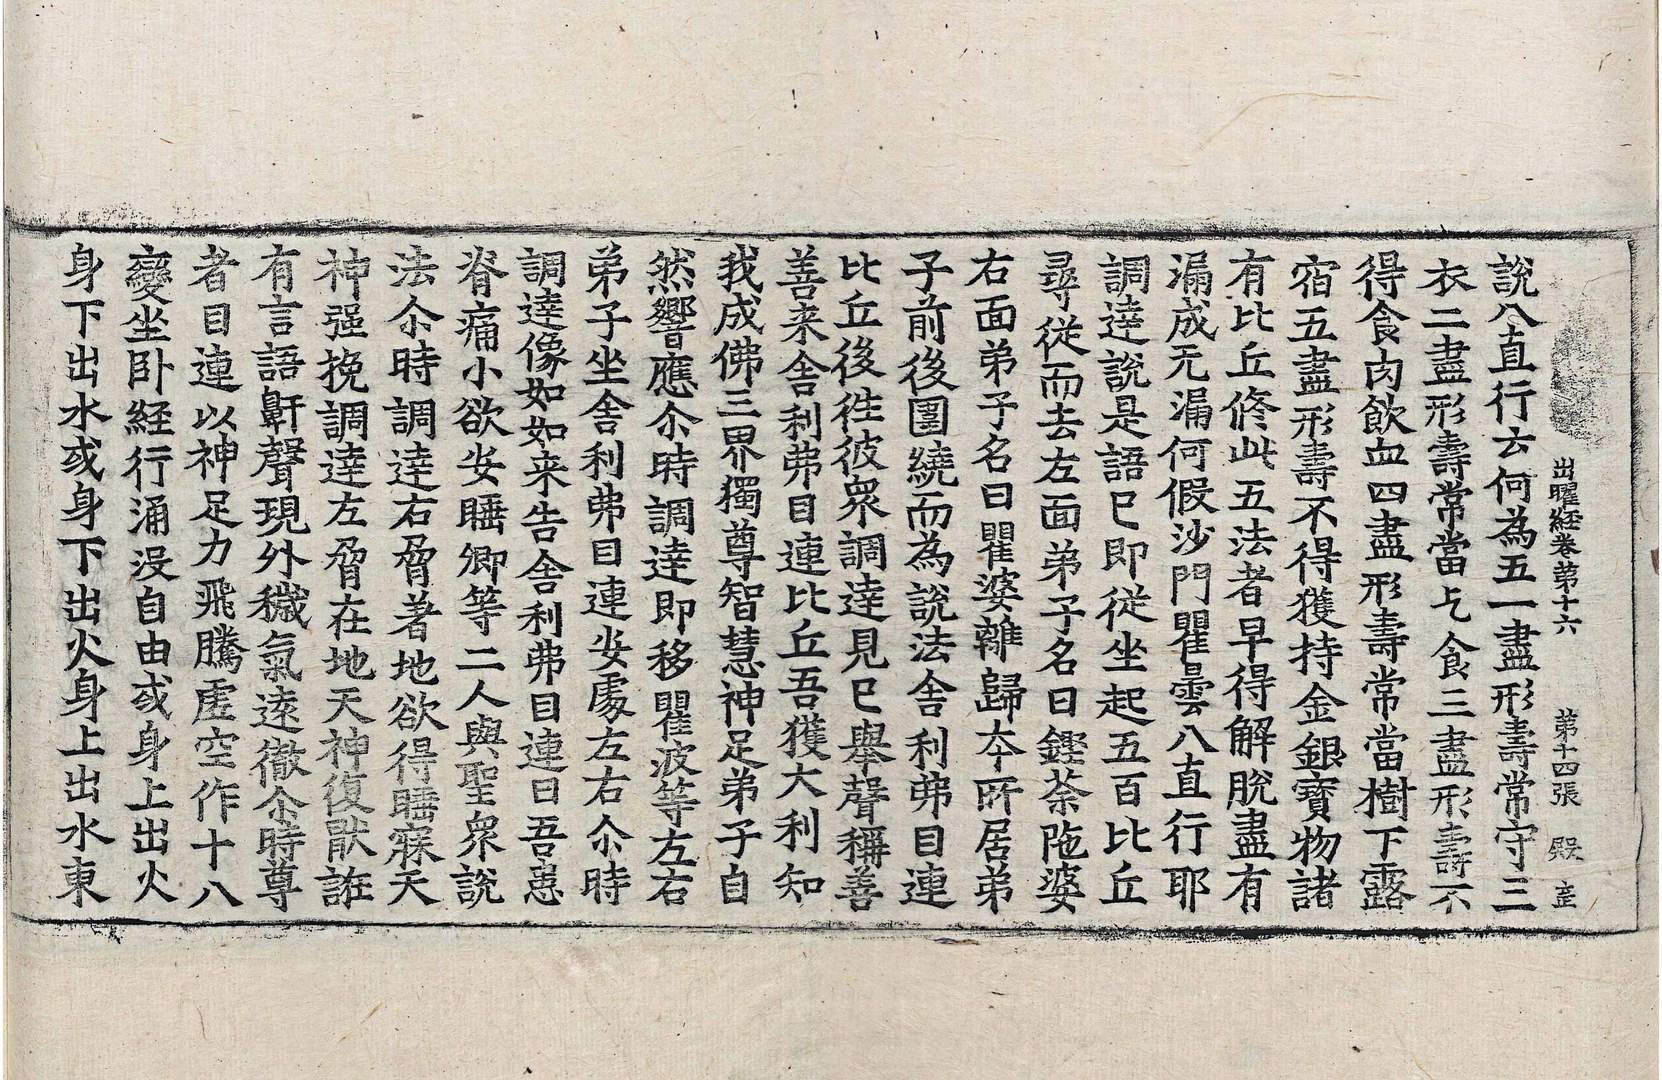 出曜経卷第十六　第十四張　殿　㝎
說八直行云何為五一盡形壽常守三
衣二盡形壽常當乞食三盡形壽不
得食肉飲血四盡形壽常當樹下露
宿五盡形壽不得獲持金銀寶物諸
有比丘修此五法者早得解脫盡有
漏成无漏何假沙門瞿曇八直行耶
調達說是語已即從坐起五百比丘
尋從而去左面弟子名曰鏗荼陁婆
右面弟子名曰瞿婆離歸夲所居弟
子前後圍繞而為說法舍利弗目連
比丘後往彼眾調達見已舉聲稱善
善来舍利弗目連比丘吾獲大利知
我成佛三界獨尊智慧神足弟子自
然響應尒時調達即移瞿波等左右
弟子坐舍利弗目連安處左右尒時
調達像如如来告舍利弗目連曰吾患
脊痛小欲安睡卿等二人與聖眾說
法尒時調達右脅著地欲得睡寐天
神强挽調達左脅在地天神復猒誑
有言語鼾聲現外穢氣遠徹尒時尊
者目連以神足力飛騰虛空作十八
變坐卧経行涌沒自由或身上出火
身下出水或身下出火身上出水東